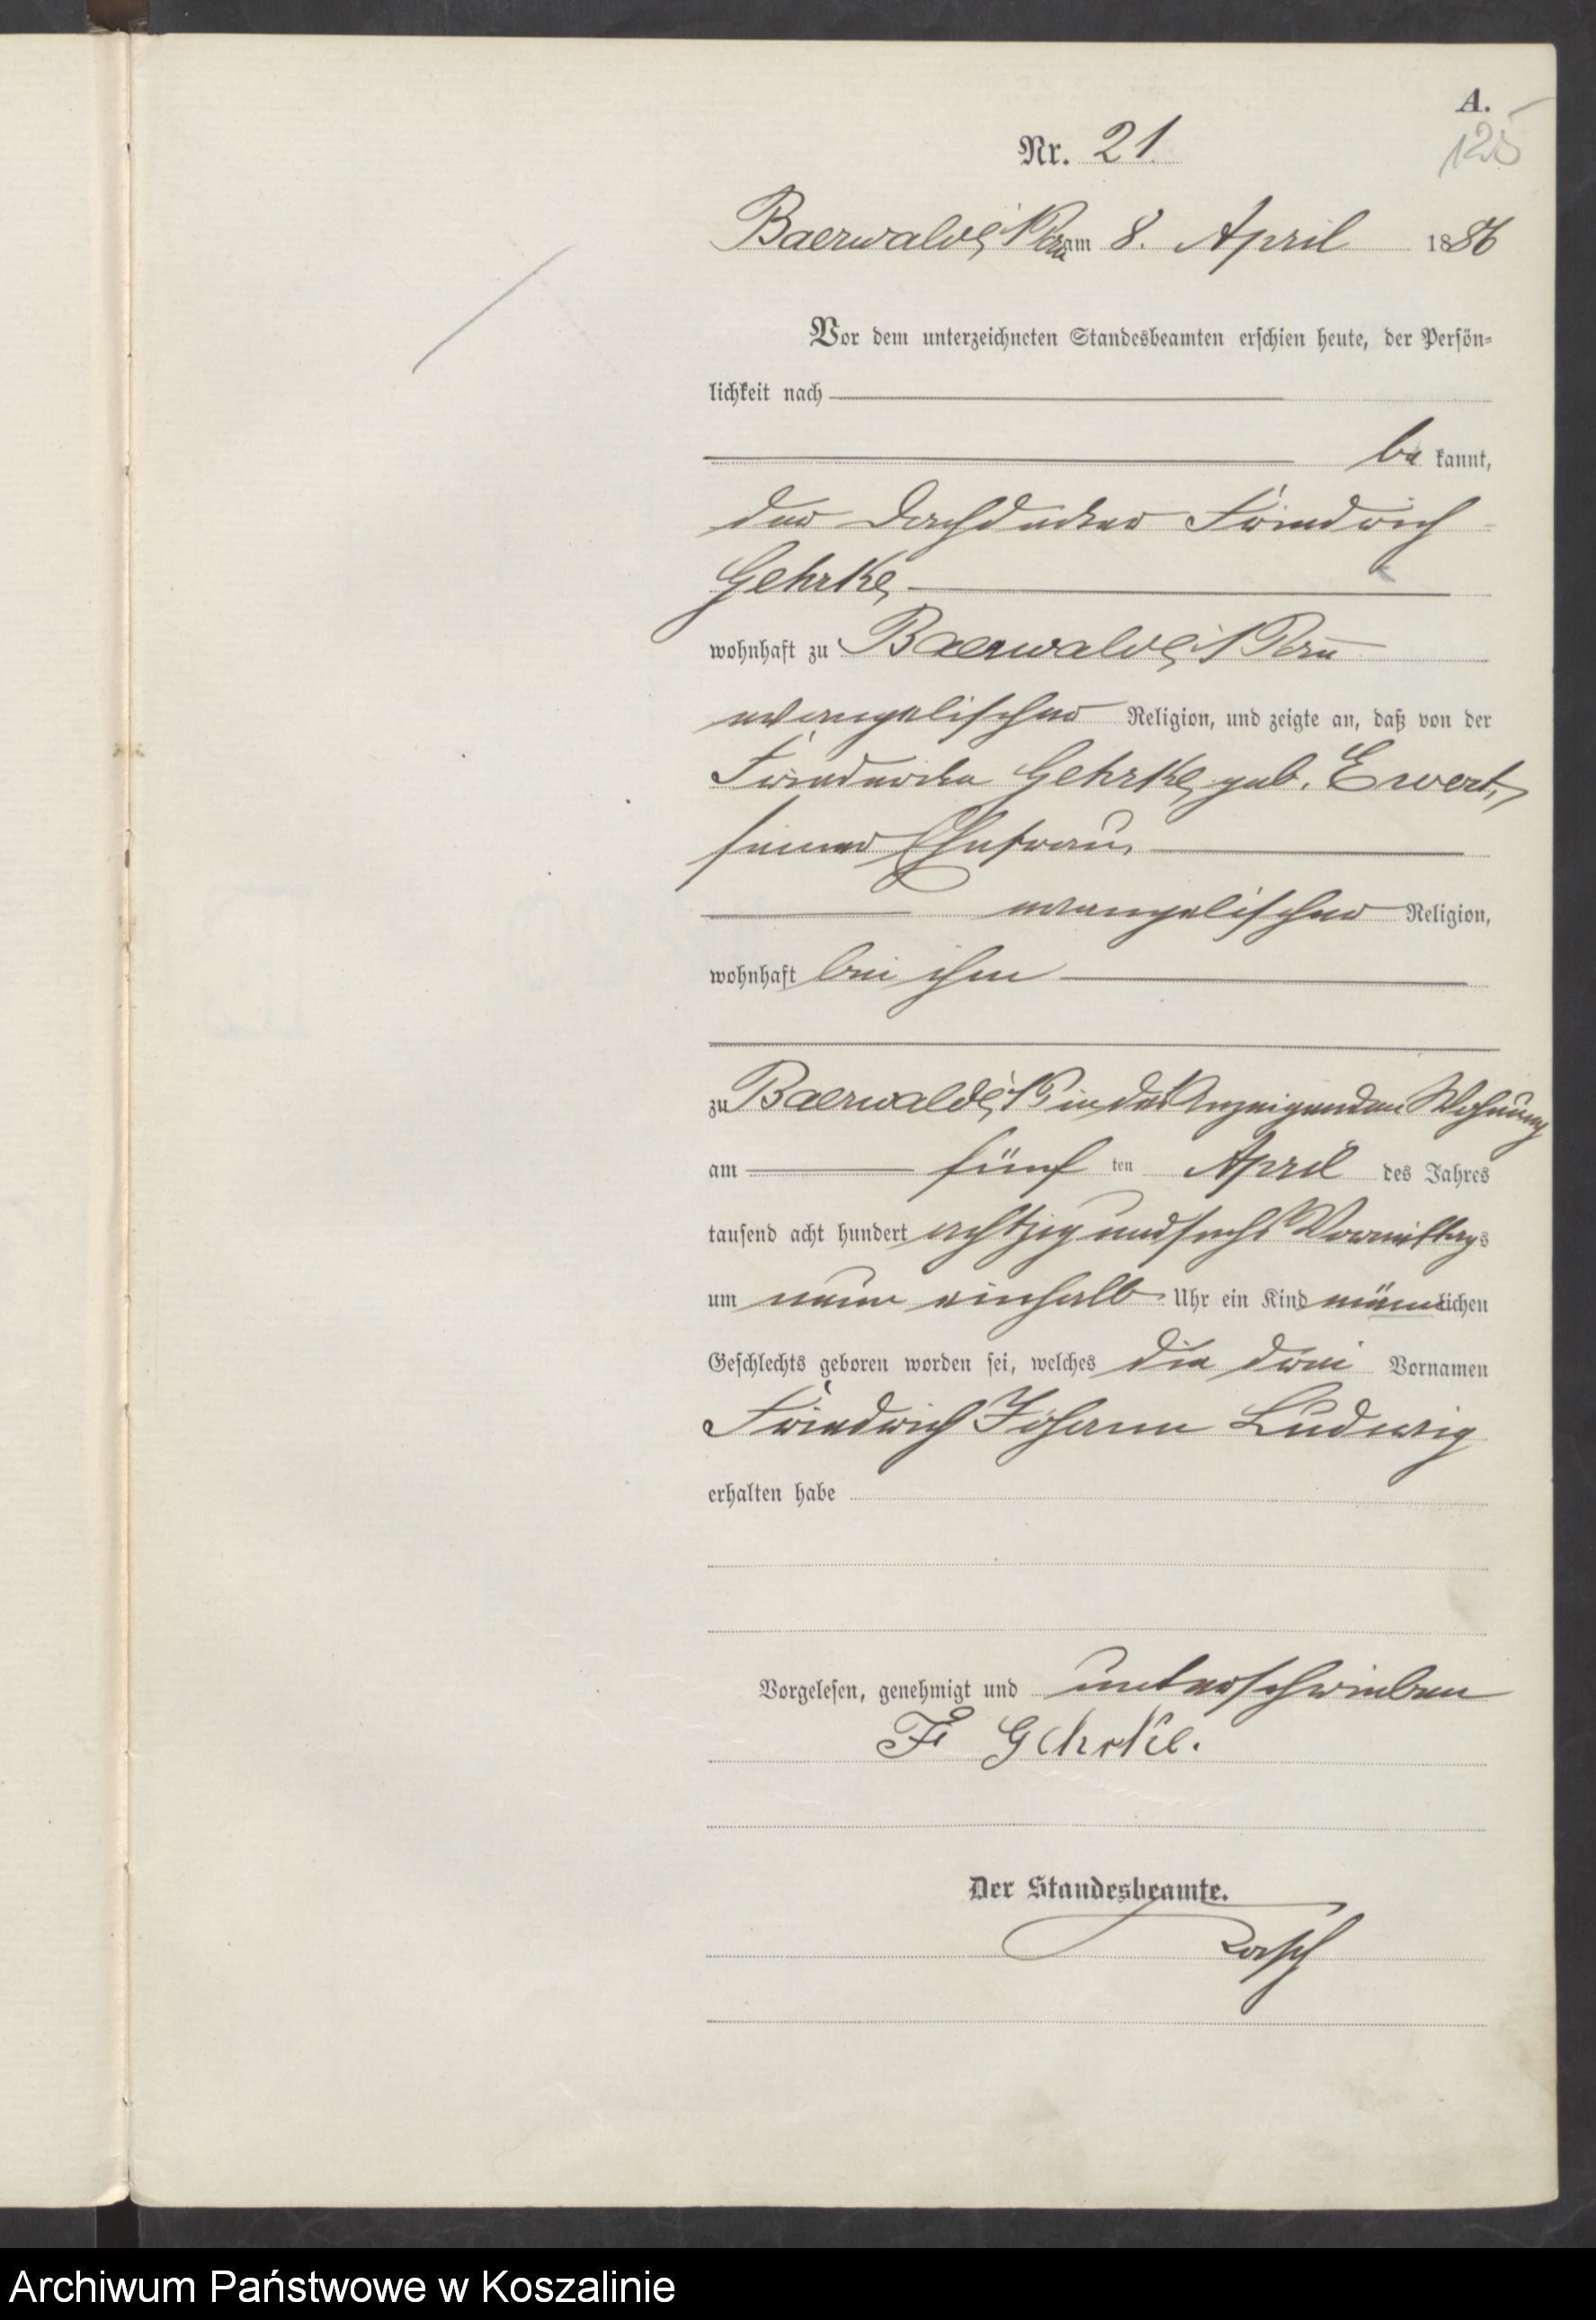 A.
125
Nr. 21
Baerwalde, i/Pom am 8. April 1886
Vor dem unterzeichneten Standesbeamten erschien heute, der Persön-
lichkeit nach
be kannt,
der Dachdecker Friedrich
Gehrke,
wohnhaft zu Baerwalde, i/Pom
evangelischer Religion, und zeigte an, daß von der
Friederike Gehrke, geb. Ewert,
seiner Ehefrau,
evangelischer Religion,
wohnhaft bei ihm
zu Baerwalde, i/P in des Anzeigenden Wohnung
am fünf ten April des Jahres
tausend acht hundert achtzig und sechs Vormittags
um neun einhalb Uhr ein Kind männlichen
Geschlechts geboren worden sei, welches die drei Vornamen
Friedrich Johann Ludwig
erhalten habe
Vorgelesen, genehmigt und unterschrieben
Fr Gehrke.
Der Standesbeamte.
Archiwum Państwowe w Koszalinie